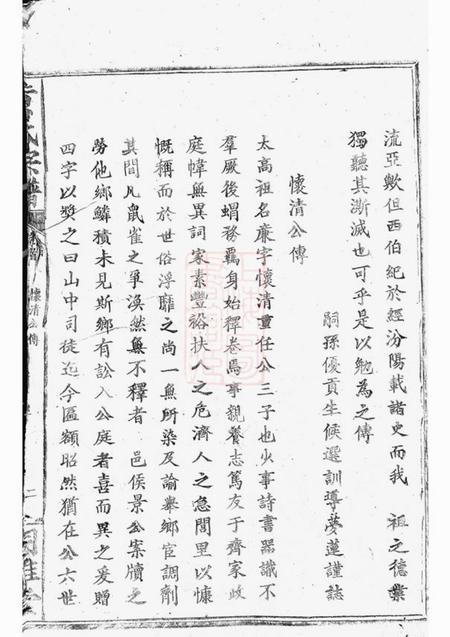 流亞歟但西伯紀於經汾陽載諸史而我 祖之德業
獨聽其澌滅也可乎是以勉為之傳
嗣孫優貢生候選訓導夢蓮謹誌
懷清公傳
太高祖名廉字懷清重任公三子也少事詩書器識不
羣厥後蝟務羈身始釋卷焉事親養志篤友于齊家政
庭幃無異詞家素豐裕扶人之危濟人之急閭里以慷
慨稱而於世俗浮靡之尚一無所染及諭舉鄉官調劑
其間凡鼠雀之爭渙然無不釋者 邑侯景公案牘之
勞他鄉鱗積未見斯鄉有訟入公庭者喜而異之爰贈
四字以獎之曰山中司徒迄今區額昭然猶在公六世
懷清公傳